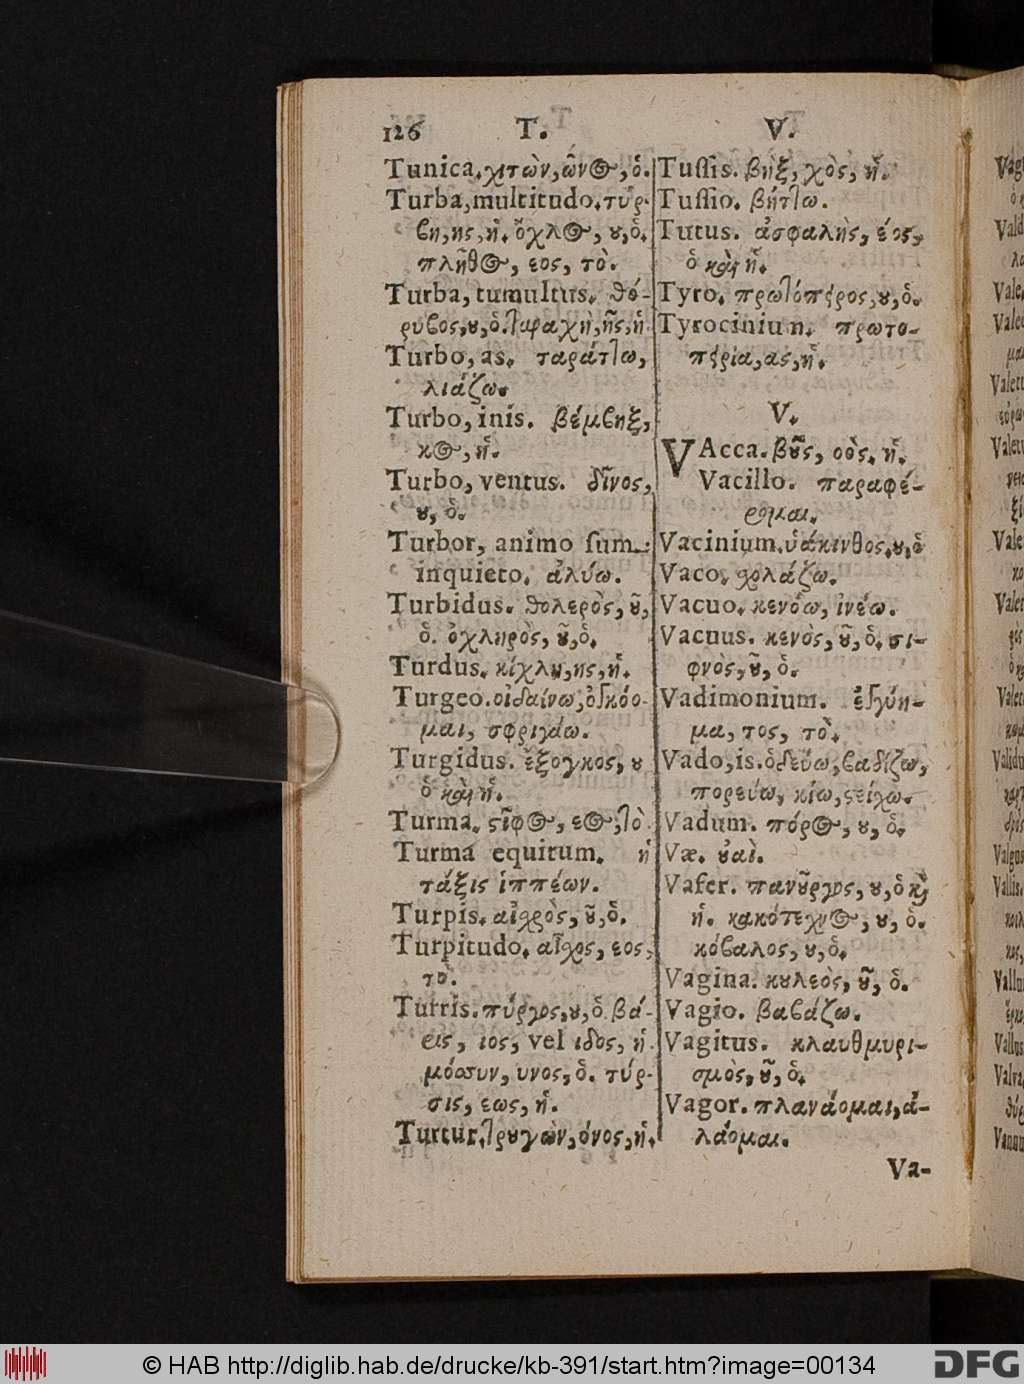 126 T. V.
Tunica. χιτὼν, ῶνος, ὁ.
Turba, multitudo. τύρ-
βη, ης, ἡ. ὄχλος, ου, ὁ.
πλῆθος, εος, τὸ.
Turba, tumultus. θό-
ρυβος, ου, ὁ. ταραχὴ, ῆς, ἡ
Turbo, as. ταράττω,
λιάζω.
Turbo, inis. βέμβηξ,
κος, ἡ.
Turbo, ventus. δῖνος,
ου, ὁ.
Turbor, animo ſum
inquieto. ἀλύω.
Turbidus. θολερὸς, οῦ,
ὁ. ὀχληρὸς, οῦ, ὁ.
Turdus. κίχλη, ης, ἡ.
Turgeo. οἰδαίνω, ὀγκόο-
μαι, σφριγάω.
Turgidus. ἔξογκος, ου
ὁ καὶ ἡ.
Turma. στῖφος, εος, τὸ
Turma equitum. ἡ
τάξις ἱππέων.
Turpis. αἰσχρὸς, οῦ, ὁ.
Turpitudo. αἶσχος, εος,
τὸ.
Turris. πύργος, ου, ὁ βά-
ρις, ιος, vel ιδος, ἡ.
μόσσυν, υνος, ὁ. τύρ-
σις, εως, ἡ.
Turtur. τρυγὼν, όνος, ἡ.
Tuſſis. βὴξ, χὸς, ἡ.
Tuſſio. βήττω.
Tutus. ἀσφαλὴς, έος,
ὁ καὶ ἡ.
Tyro. πρωτόπειρος, ου, ὁ.
Tyrocinium. πρωτο-
πειρία, ας, ἡ.
V.
VAcca. βοῦς, οὸς. ἡ.
Vacillo. παραφέ-
ρομαι.
Vacinium. ὑάκινθος, ου, ὁ
Vaco. σχολάζω.
Vacuo. κενόω, ἰνέω.
Vacuus. κενὸς, οῦ, ὁ. σι-
φνὸς, οῦ, ὁ.
Vadimonium. ἐγγύη-
μα, τος, τὸ.
Vado, is. ὁδεύω, βαδίζω,
πορεύω, κίω, στείχω.
Vadum. πόρος, ου, ὁ.
Væ. οὐαὶ.
Vafer. πανοῦργος, ου, ὁ καὶ
ἡ. κακότεχνος, ου, ὁ.
κόβαλος, ου, ὁ.
Vagina. κουλεὸς, οῦ, ὁ.
Vagio. βαβάζω.
Vagitus. κλαυθμυρι-
σμὸς, οῦ, ὁ.
Vagor. πλανάομαι, ἀ-
λάομαι.
Va-
© HAB http://diglib.hab.de/drucke/kb-391/start.htm?image=00134
DFG